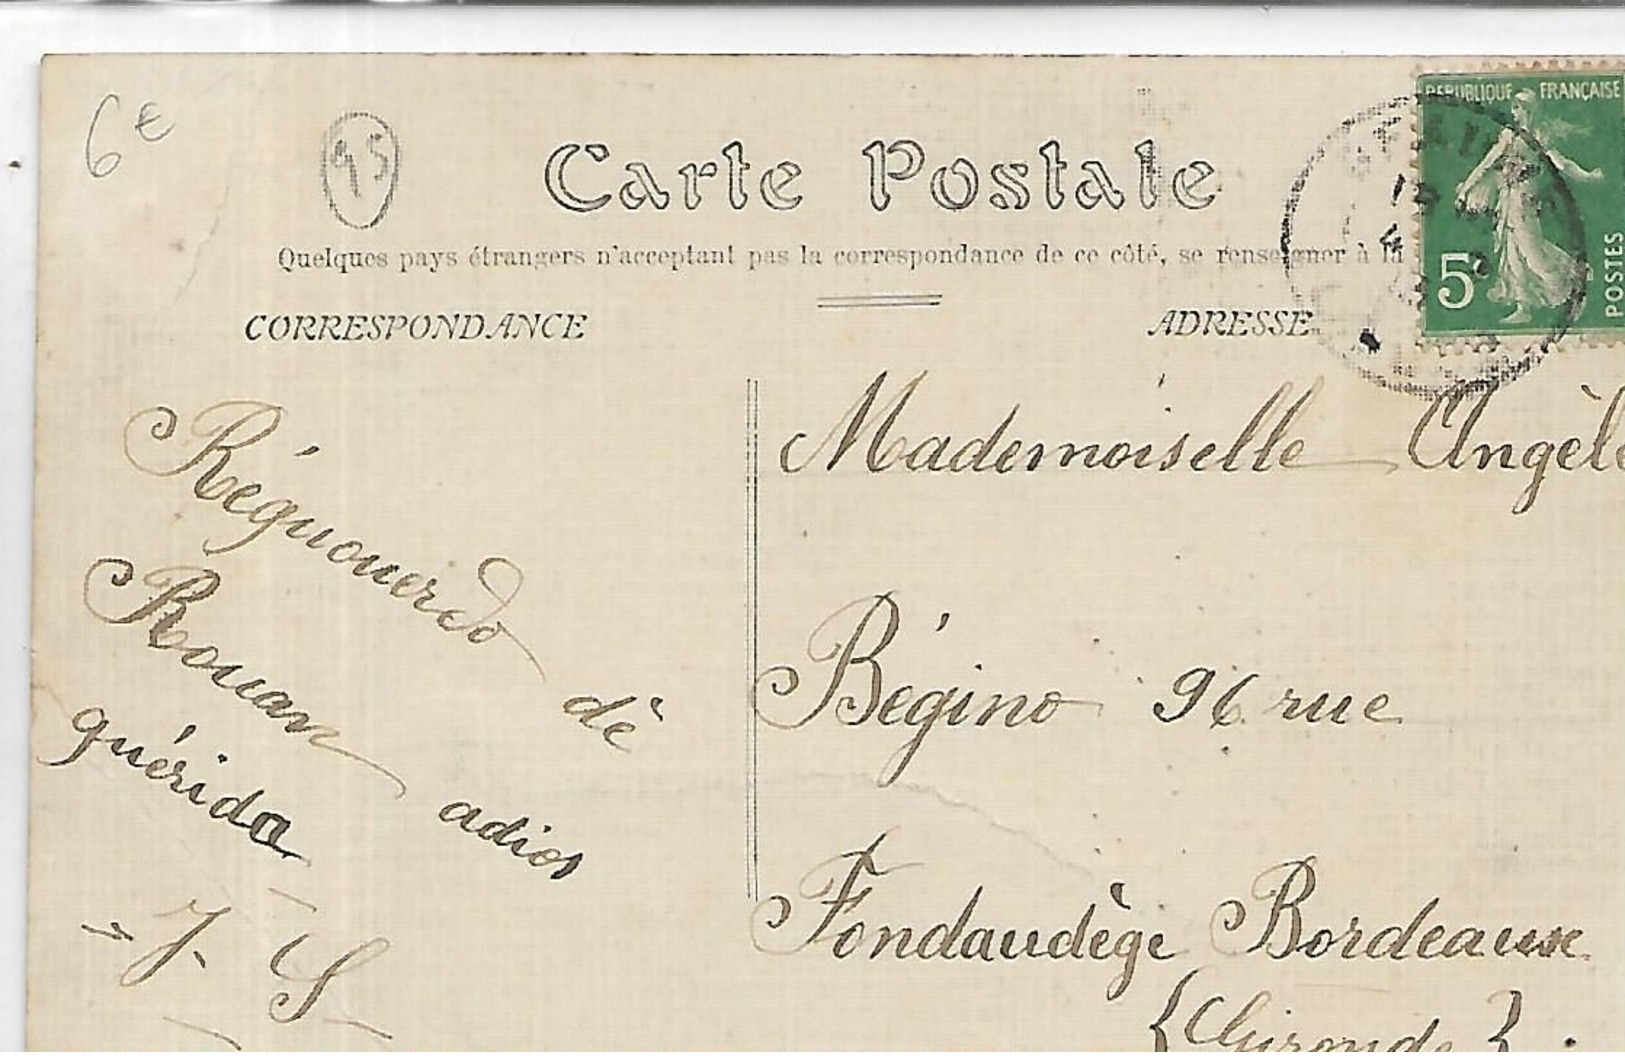 6€
95
Carte Postale
Quelques pays étrangers n'acceptant pas la correspondance de ce côté, se renseigner à la
CORRESPONDANCE
ADRESSE
REPUBLIQUE FRANÇAISE
5c
POSTES
Réguouerdo dè
Rouan adios
quérida
- J. S -
Mademoiselle Angèle
Bégino 96 rue
Fondaudège Bordeaux
{Gironde}.